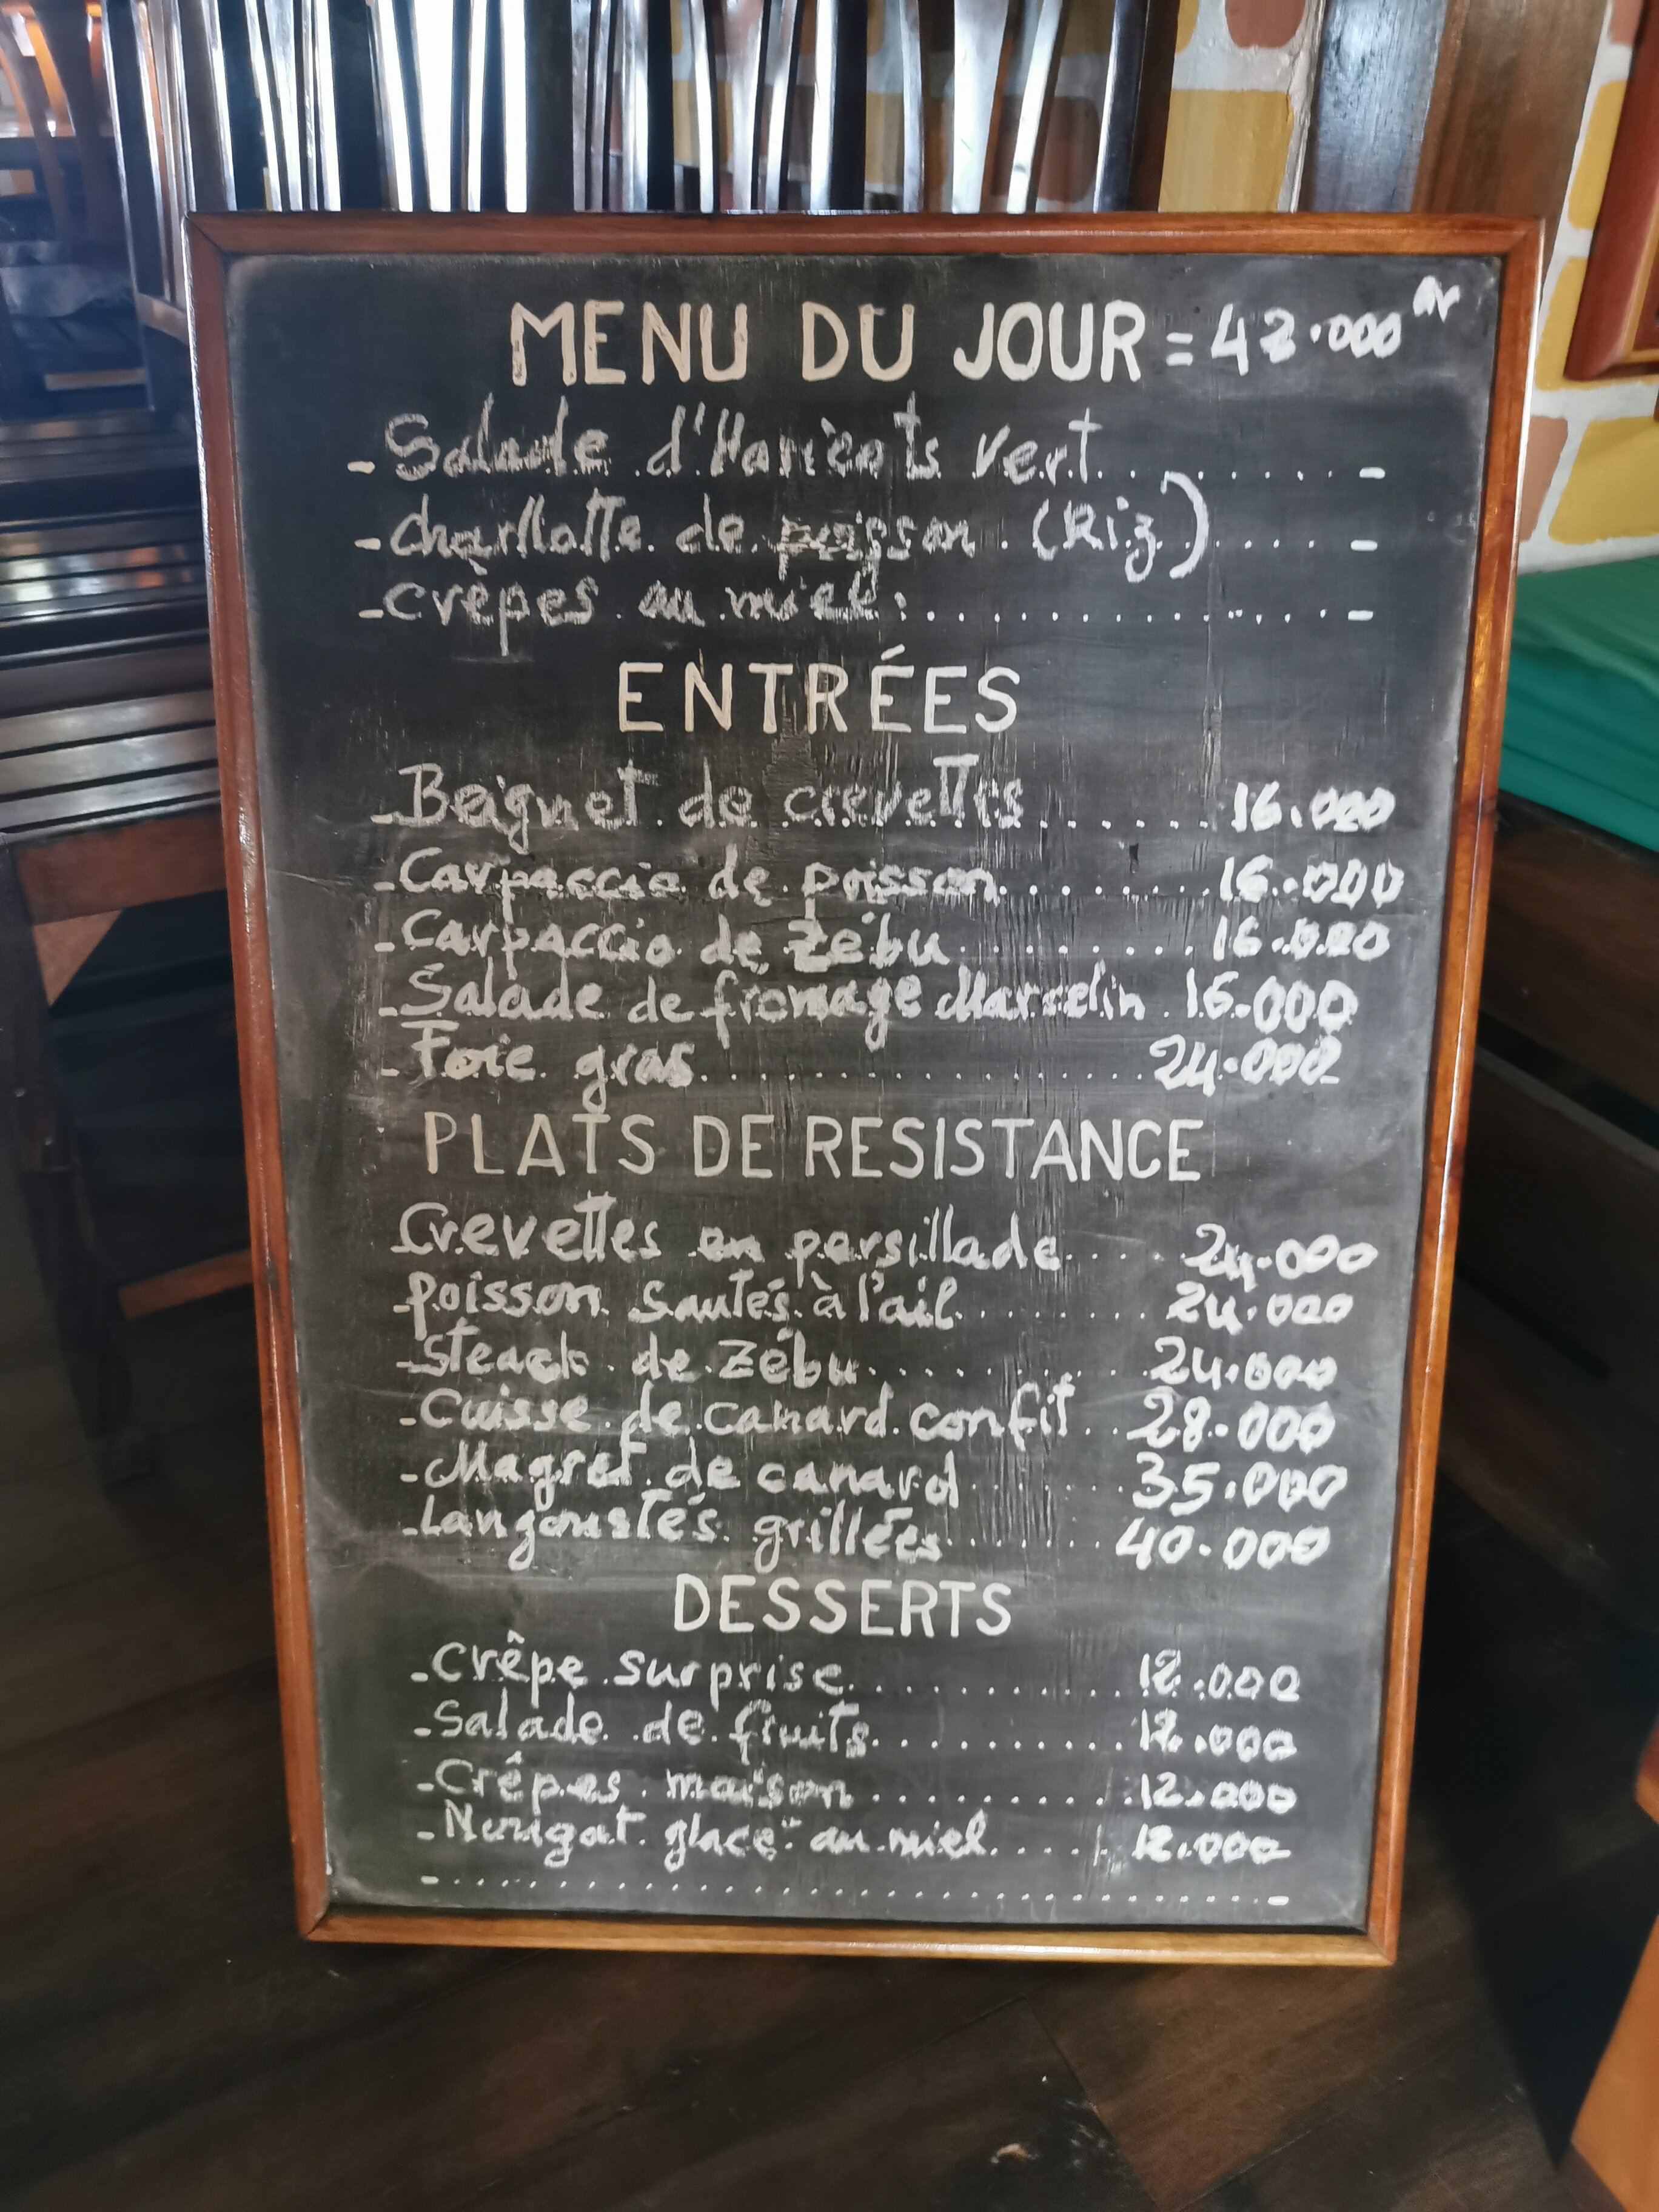 MENU DU JOUR = 42.000 Ar
- Salade d'Haricots vert ........ -
- charllotte de poisson (Riz) .... -
- crèpes au miel: ............ -
ENTRÉES
- Beignet de crevettes ...... 16.000
- Carpaccio de poisson ....... 16.000
- Carpaccio de zébu ........ 16.000
- Salade de fromage Marcelin . 16.000
- Foie gras ............... 24.000
PLATS DE RESISTANCE
- Crevettes en persillade .... 24.000
- poisson sautés à l'ail ....... 24.000
- steack de zébu .......... 24.000
- Cuisse de canard confit .. 28.000
- Magret de canard ....... 35.000
- Langoustés grillées ....... 40.000
DESSERTS
- Crêpe surprise ........... 12.000
- Salade de fruits .......... 12.000
- Crêpes maison ........... 12.000
- Nougat glacé au miel ..... 12.000
- .............................. -